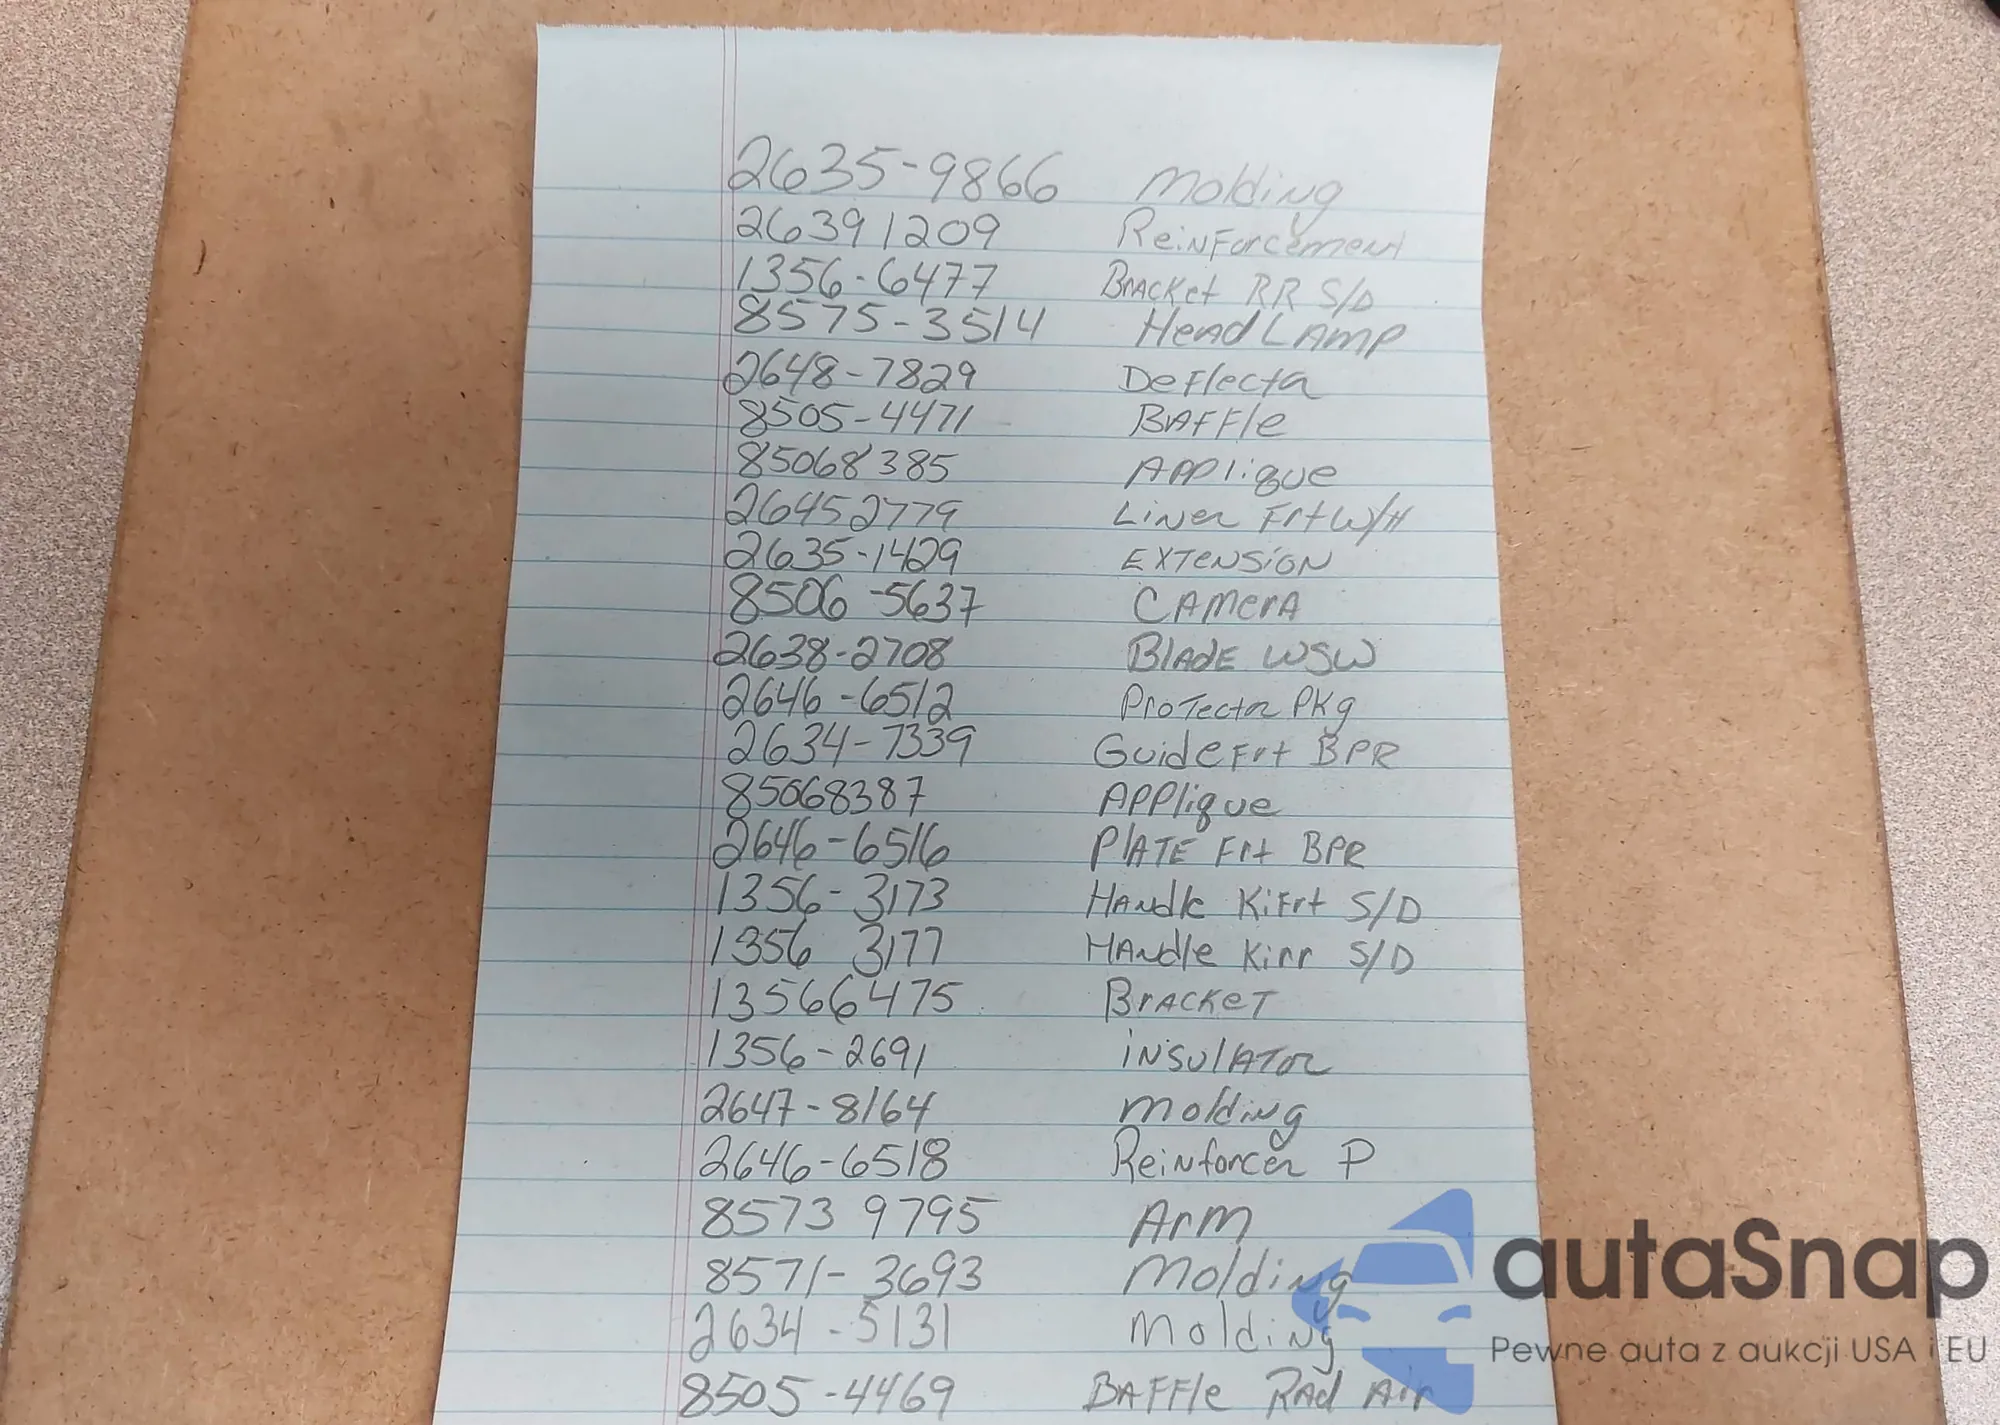 2635-9866 Molding
26391209 Reinforcement
1356-6477 Bracket RR S/D
8575-3514 Head Lamp
2648-7829 Deflecta
8505-4471 Baffle
85068385 Applique
26452779 Liner Frt W/H
2635-1429 Extension
8506-5637 Camera
2638-2708 Blade WSW
2646-6512 Protector Pkg
2634-7339 Guide Frt BPR
85068387 Applique
2646-6516 Plate Frt BPR
1356-3173 Handle Ki Frt S/D
1356 3177 Handle Ki rr S/D
13566475 Bracket
1356-2691 insulator
2647-8164 Molding
2646-6518 Reinforcer P
8573 9795 Arm
8571-3693 Molding
2634-5131 Molding
8505-4469 Baffle Rad Air
autaSnap
Pewne auta z aukcji USA i EU